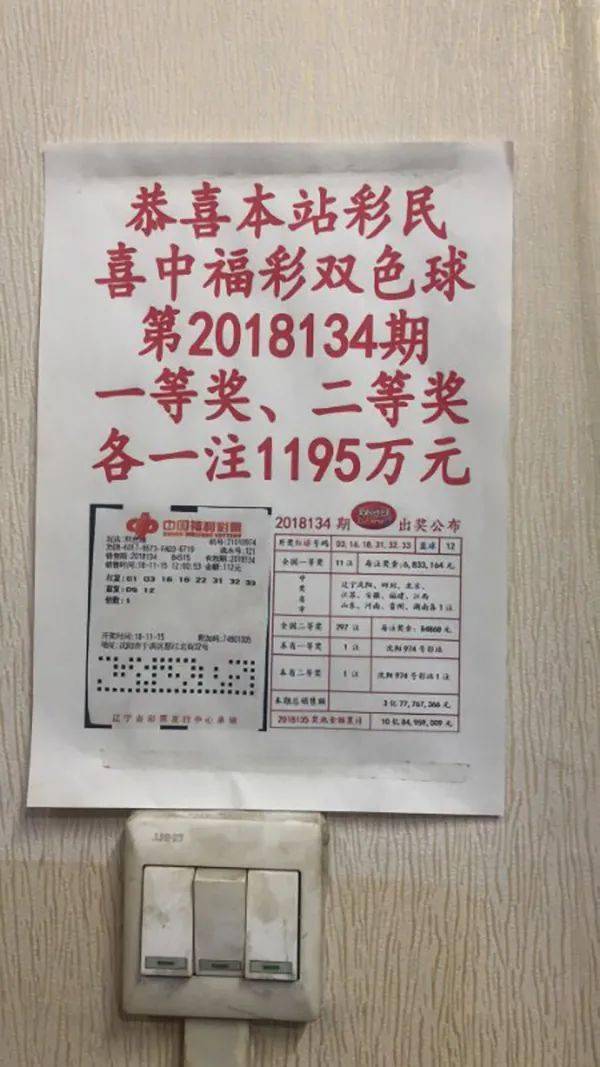 恭喜本站彩民
喜中福彩双色球
第2018134期
一等奖、二等奖
各一注1195万元
中国福利彩票
销售期:2018134
销售时间:18-11-15 12:00:53 金额:112元
红复:01 03 16 18 22 31 32 33
蓝复:09 12
倍数:1
开奖时间:18-11-15
辽宁省彩票发行中心承销
2018134 期
出奖公布
开奖红球号码 03,16,18,31,32,33 蓝球 12
全国一等奖 11 注 每注奖金:6,833,164 元
中奖省市
辽宁沈阳、四川、北京、
江苏、安徽、福建、江西
山东、河南、贵州、湖南各1注
全国二等奖 297 注 每注奖金:
本省一等奖 1 注 沈阳 974 号彩站
本省二等奖 1 注 沈阳 974 号彩站 1 注
本期总销售额 3 亿 77,767,366 元
2018135 奖池金额累计 10 亿 84,959,009 元